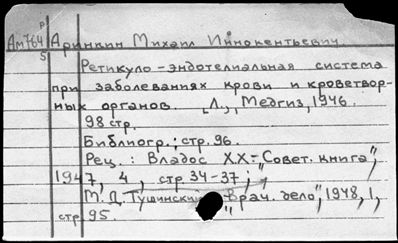 Р
Ам764 Аринкин Михаил Иннокентьевич.
5
Ретикуло-эндотелиальная система
при заболеваниях крови и кроветвор-
ных органов. [Л., Медгиз, 1946.
98 стр.
Библиогр.: стр. 96.
Рец.: Владос ХХ.- "Совет. книга",
1947, 4, стр 34-37;
М.Д. Тушинский "Врач. дело", 1948, 1,
стр 95.